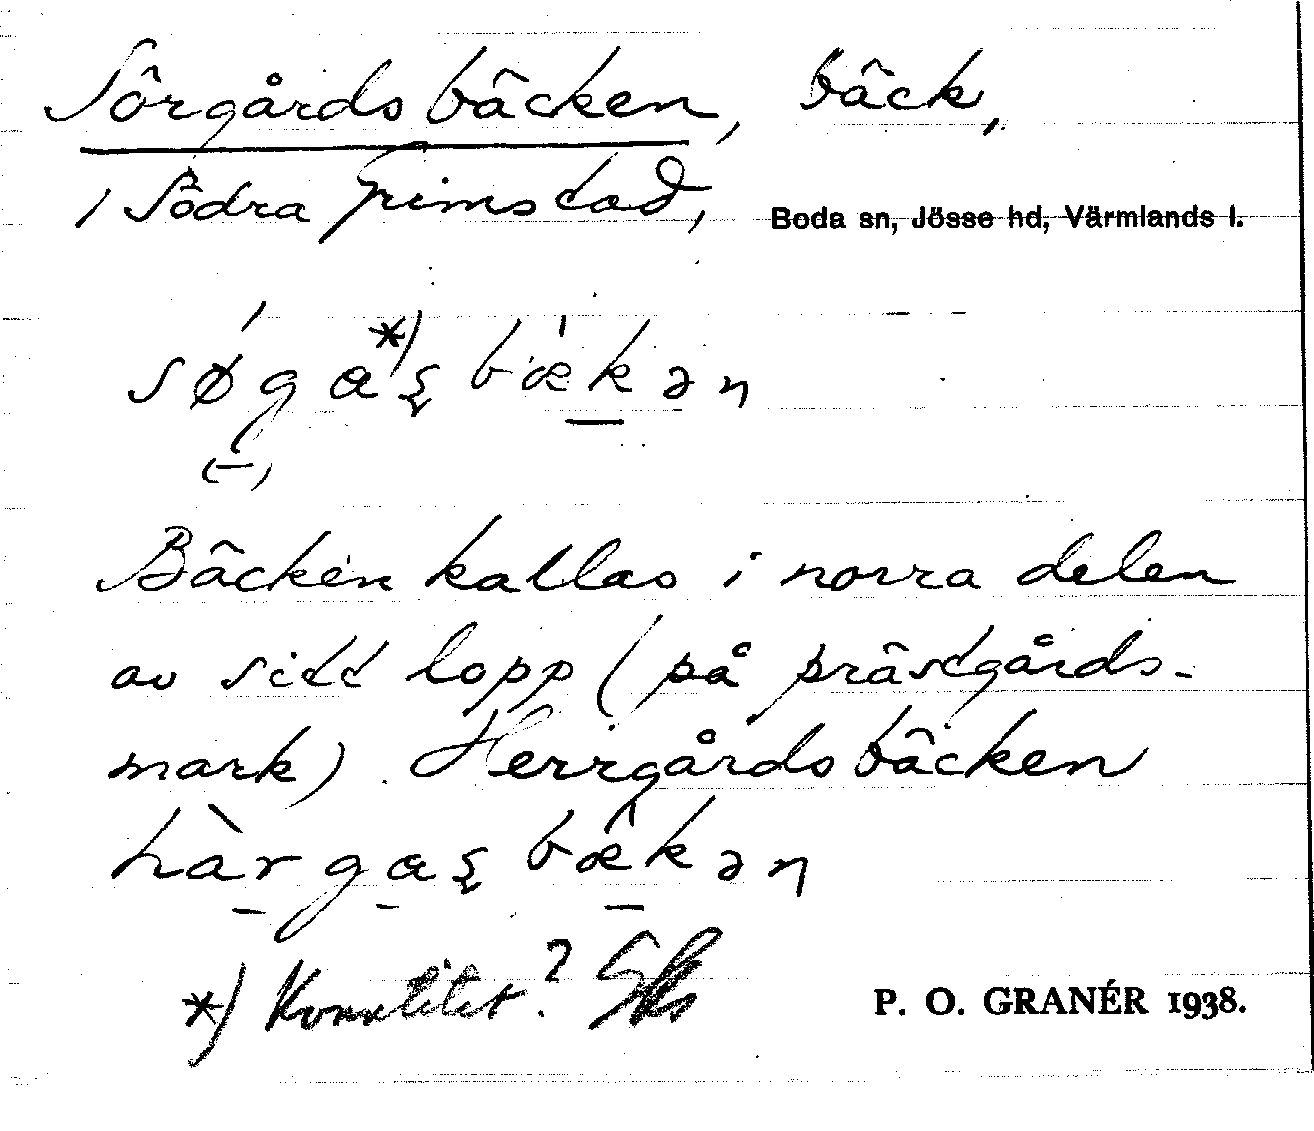 Sörgårdsbäcken, bäck,
i Södra Grimstad, Boda sn, Jösse hd, Värmlands l.
søgaʂbækən
Bäcken kallas i norra delen
av sitt lopp (på prästgårds-
mark) Herrgårdsbäcken
hàrgaʂbækən
*) Kvantitet?
P. O. GRANÉR 1938.